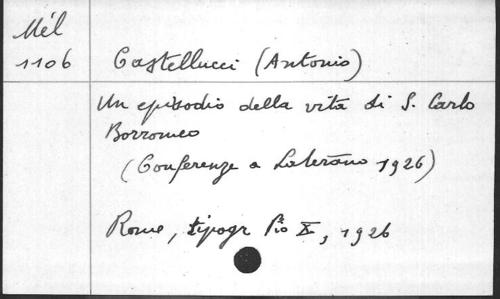 Mél
1106
Castellucci (Antonio)
Un episodio della vita di S. Carlo
Borromeo
(Conferenze a Laterano 1926)
Rome, tipogr Pio X, 1926